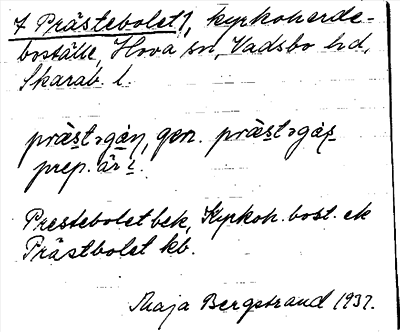 [Prästebolet], kyrkoherde-
boställe, Hova sn, Vadsbo hd,
Skarab. l.
præst⁠əgán, gen. præst⁠əgás
prep. är i.
Prestebolet bek, Kyrkoh. bost. ek
Prästbolet kb.
Maja Bergstrand 1937.